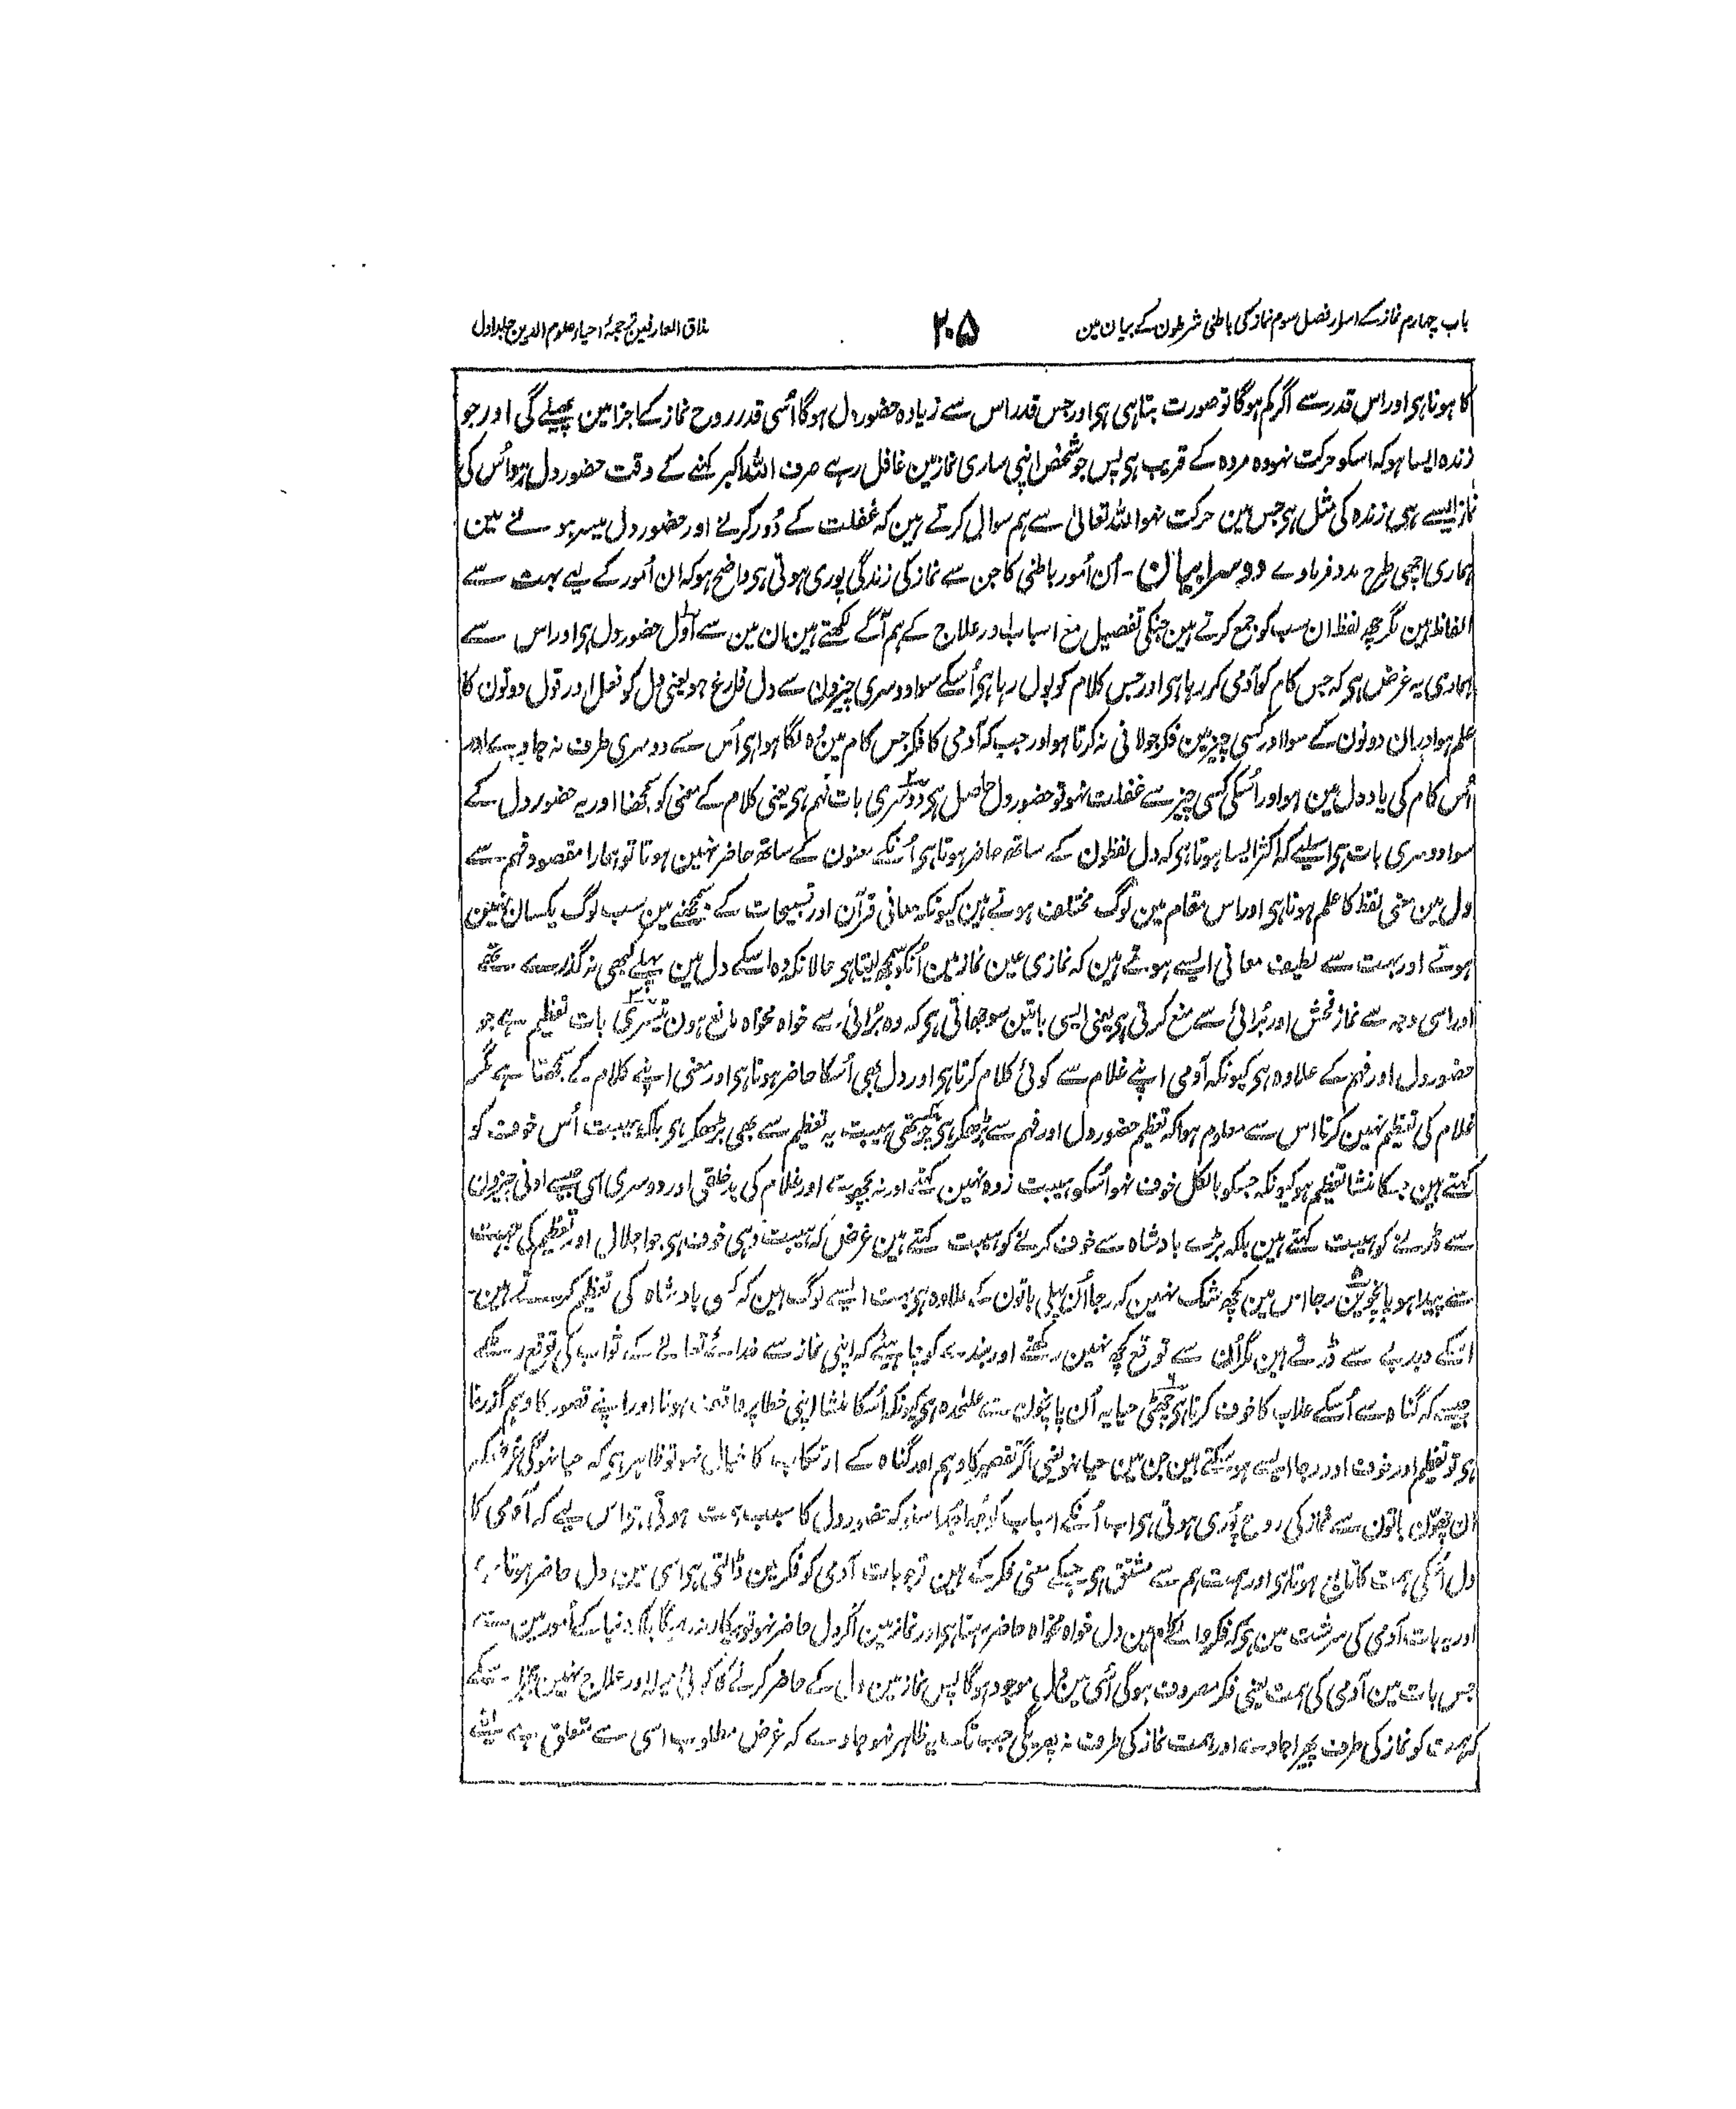 باب چہارم نماز کے اسرار فصل سوم نماز کی باطنی شرطون کے بیان مین
۲۰۵
مذاق العارفین ترجمۂ احیاء علوم الدین جلد اول
کا ہونا ہی اور اس قدر سے اگر کم ہوگا تو صورت تباہی ہی اور جس قدر اس سے زیادہ حضور دل ہوگا اُسی قدر روح نماز کے اجزا مین پھیلے گی اور جو
زندہ ایسا ہو کہ اسکو حرکت نہو وہ مردہ کے قریب ہی پس جو شخص اپنی ساری نماز مین غافل رہے صرف اللہ اکبر کہنے کے وقت حضور دل ہو اُس کی
نماز ایسے ہی زندہ کی مثل ہی جس مین حرکت نہو اللہ تعالیٰ سے ہم سوال کرتے ہین کہ غفلت کے دُور کرنے اور حضور دل میسر ہونے مین
ہماری اچھی طرح مدد فرماوے دوسرا بیان - اُن اُمور باطنی کا جن سے نماز کی زندگی پوری ہوتی ہی واضح ہو کہ ان اُمور کے لیے بہت سے
الفاظ ہین مگر چھ لفظ ان سب کو جمع کرتے ہین جنکی تفصیل مع اسباب اور علاج کے ہم آگے لکھتے ہین ان مین سے اول حضور دل ہی اور اس سے
ہماری یہ غرض ہی کہ جس کام کو آدمی کر رہا ہی اور جس کلام کو بول رہا ہی اُسکے سوا دوسری چیزون سے دل فارغ ہو یعنی دل کو فعل اور قول دونون کا
علم ہو اور ان دونون کے سوا اور کسی چیز مین فکر جولانی نہ کرتا ہو اور جب کہ آدمی کا فکر جس کام مین وہ لگا ہوا ہی اُس سے دوسری طرف نہ جاوے اور
اُس کام کی یاد دل مین ہو اور اُسکی کسی چیز سے غفلت نہو تو حضور دل حاصل ہی دوسری بات فہم ہی یعنی کلام کے معنی کو سمجھنا اور یہ حضور دل کے
سوا دوسری بات ہی اسلیے کہ اکثر ایسا ہوتا ہی کہ دل لفظون کے ساتھ حاضر ہوتا ہی اُنکے معنون کے ساتھ حاضر نہین ہوتا تو ہمارا مقصود فہم سے
دل مین معنی لفظ کا علم ہونا ہی اور اس مقام مین لوگ مختلف ہوتے ہین کیونکہ معانی قرآن اور تسبیحات کے سمجھنے مین سب لوگ یکسان نہین
ہوتے اور بہت سے لطیف معانی ایسے ہوتے ہین کہ نمازی عین نماز مین اُنکو سمجھ لیتا ہی حالانکہ وہ اسکے دل مین پہلے کبھی نہ گذرے تھے
اور اسی وجہ سے نماز فحش اور بُرائی سے منع کرتی ہی یعنی ایسی باتین سوجھاتی ہی کہ وہ بُرائی سے خواہ مخواہ مانع ہون تیسری بات تعظیم ہے جو
حضور دل اور فہم کے علاوہ ہی کیونکہ آدمی اپنے غلام سے کوئی کلام کرتا ہی اور دل بھی اُسکا حاضر ہوتا ہی اور معنی اپنے کلام کے سمجھتا ہے مگر
غلام کی تعظیم نہین کرتا اس سے معلوم ہوا کہ تعظیم حضور دل اور فہم سے بڑھکر ہی چوتھی ہیبت یہ تعظیم سے بھی بڑھکر ہی بلکہ ہیبت اُس خوف کو
کہتے ہین جسکا منشا تعظیم ہو کیونکہ جسکو بالکل خوف نہو اُسکو ہیبت زدہ نہین کہتے اور نہ بچھو سے اور غلام کی بدخلقی اور دوسری اسی جیسے ادنی چیزون
سے ڈرنے کو ہیبت کہتے ہین بلکہ بڑے بادشاہ سے خوف کرنے کو ہیبت کہتے ہین غرض کہ ہیبت وہی خوف ہی جو اجلال اور تعظیم کی جہت
سے پیدا ہو پانچوین رجا اس مین کچھ شک نہین کہ رجا اُن پہلی باتون کے علاوہ ہی بہت ایسے لوگ ہین کہ کسی بادشاہ کی تعظیم کرتے ہین
اسکے دبدبے سے ڈرتے ہین مگر اُن سے توقع کچھ نہین رکھتے اور بندے کو چاہیئے کہ اپنی نماز سے خدائے تعالےٰ کے ثواب کی توقع رکھے
جیسے کہ گناہ سے اُسکے عذاب کا خوف کرتا ہی چھٹی حیا یہ اُن پانچون سے علٰحدہ ہی کیونکہ اُسکا منشا اپنی خطا پر واقف ہونا اور اپنے قصور کا وہم گذرنا
ہی تو تعظیم اور خوف اور رجا ایسے ہو سکتے ہین جن مین حیا نہو یعنی اگر تقصیر کا وہم اور گناہ کے ارتکاب کا خیال نہو تو ظاہر ہی کہ حیا نہوگی غرضکہ
ان چھون باتون سے نماز کی روح پوری ہوتی ہی اب اُنکے اسباب کو جدا جدا سنو کہ حضور دل کا سبب ہمت ہوتی ہی اس لیے کہ آدمی کا
دل اُسکی ہمت کا تابع ہوتا ہی اور ہمت ہم سے مشتق ہی جسکے معنی فکر کے ہین تو جو بات آدمی کو فکر مین ڈالتی ہی اسی مین دل حاضر ہوتا ہی
اور یہ بات آدمی کی سرشت مین ہی کہ فکر والے کام مین دل خواہ مخواہ حاضر رہتا ہی اور نماز مین اگر دل حاضر نہو تو بیکار نہ رہیگا بلکہ دنیا کے اُمور مین سے
جس بات مین آدمی کی ہمت یعنی فکر مصروف ہوگی اُسی مین دل موجود ہوگا پس نماز مین دل کے حاضر کرنے کا کوئی حیلہ اور علاج نہین بجز اسکے
کہ ہمت کو نماز کی طرف پھیرا جاوے اور ہمت نماز کی طرف نہ پھریگی جب تک یہ ظاہر نہو جاوے کہ غرض مطلوب اسی سے متعلق ہے